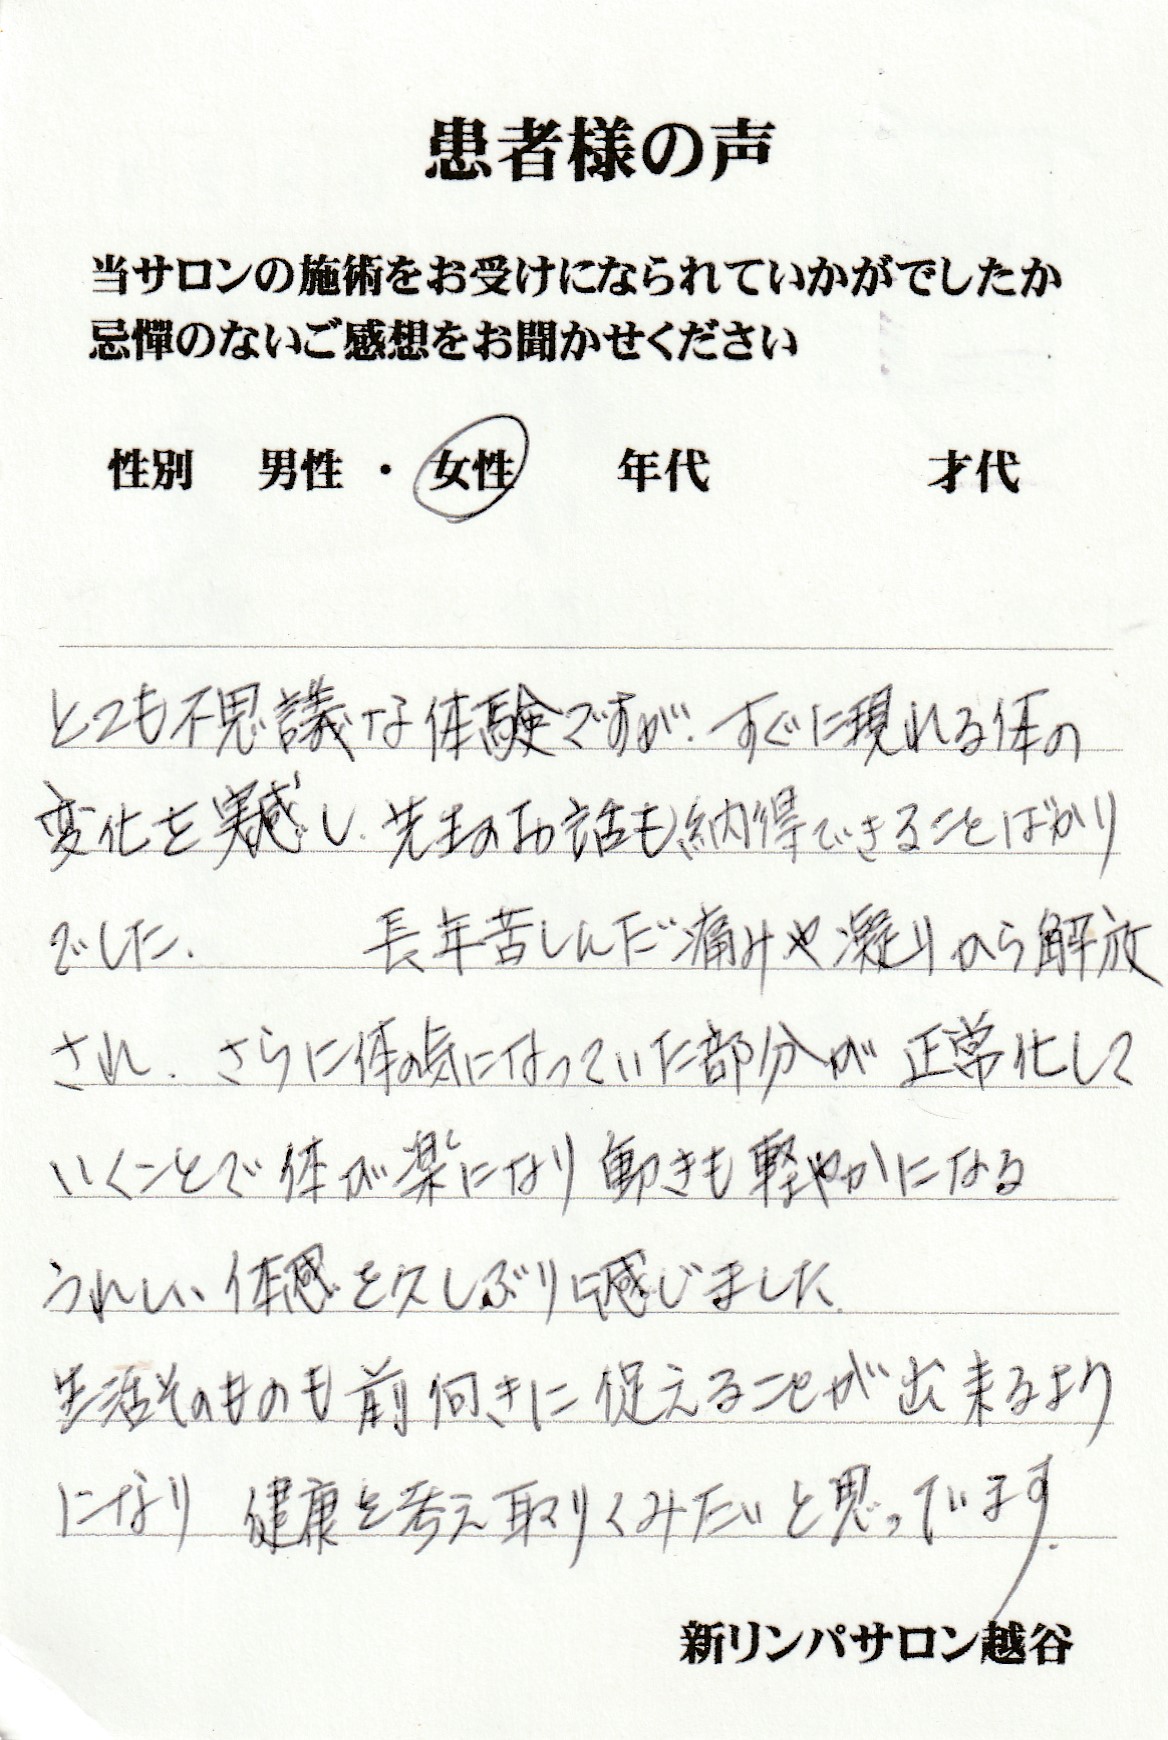 患者様の声
当サロンの施術をお受けになられていかがでしたか
忌憚のないご感想をお聞かせください
性別 男性・女性 年代 才代
とても不思議な体験ですが、すぐに現れる体の
変化を実感し、先生のお話も納得できることばかり
でした。 長年苦しんだ痛みや凝りから解放
され、さらに体の気になっていた部分が正常化して
いくことで体が楽になり動きも軽やかになる
うれしい体感を久しぶりに感じました。
生活そのものも前向きに捉えることが出来るより
になり 健康を考え取りくみたいと思っています。
新リンパサロン越谷